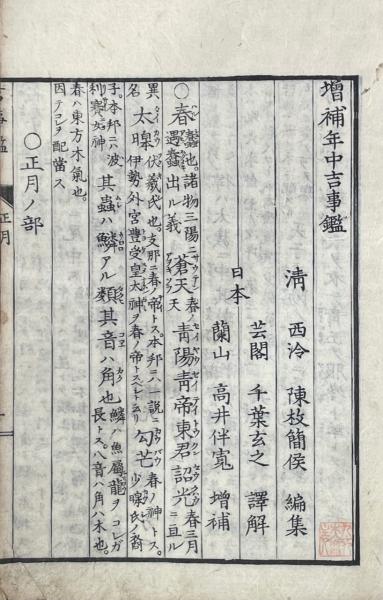 增補年中吉事鑑
清 西泠 陳枚簡侯 編集
日本
芸閣 千葉玄之 譯解
蘭山 高井伴寛 增補
○春 蠢也。諸物三陽ニ遇蠢出ル義 蒼天 春ノ天 青陽青帝東君韶光 春三月ニ亘ル
異名 太皞 伏羲氏也。支那ニ春ノ帝トス。本邦ニハ一説ニ日伊勢外宮豐受皇太神ヲ春ノ帝トスベシト云リ 勾芒 春ノ神トス。少皞氏ノ裔
子。本邦ニハ波利賽女神 其蟲ハ鱗アル類其音ハ角也 鱗ハ魚屬龍ヲコレガ長トス。八音ハ角ハ木也。
春ハ東方木氣也。
因テコレヲ配當ス
○正月ノ部
正月